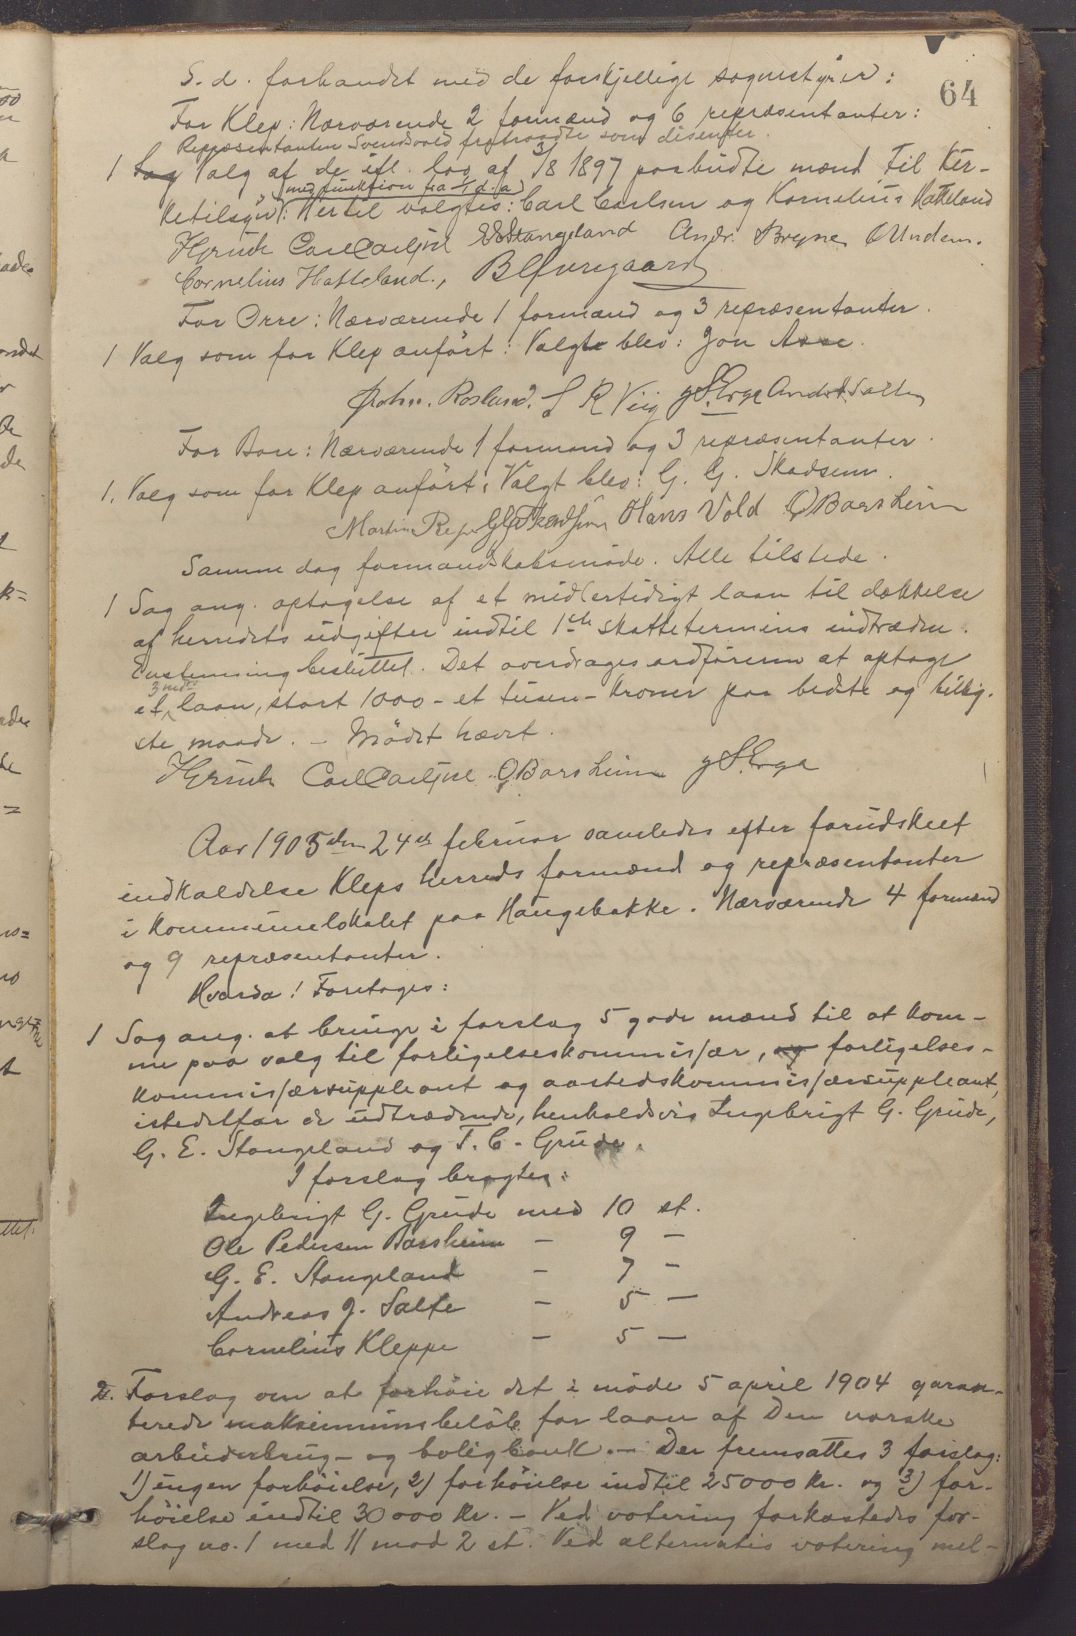 64
S. d. forhandlet med de forskjellige sognestyrer:
For Klep: Nærværende 2 formænd og 6 repræsentanter:
Repræsentanten Svendsvold fratraadte som disenter.
1 Sag Valg af de ifl. lov af 3/8 1897 paabudte mænd til kir-
(med funktion fra 1/1 d. a.)
ketilsyn: Hertil valgtes: Carl Carlsen og Kornelius Hatteland
HGrude Carl Carlsen Stangeland Andr. Bryne, O Undem.
Cornelius Hatteland., B Øvregaard
For Orre: Nærværende 1 formænd og 3 repræsentanter.
1 Valg som for Klep anført: Valgt blev: Jon Aase.
John. Rosland. S R Viig J. S. Erga Andr. J. Salte
For Bore: Nærværende 1 formand og 3 repræsentanter.
1. Valg som for Klep anført: Valgt blev: G. G. Skadsem.
Martin Reve G G Skadsem Hans Vold O Borsheim
Samme dag formandskabsmøde. Alle tilstede.
1 Sag ang. optagelse af et midlertidigt laan til dækkelse
af herredets udgifter indtil 1ste skattetermins indtræden.
Enstemmig besluttet. Det overdrages ordføreren at optage
3 mdr
et laan, stort 1000 - et tusen - kroner paa bedste og billig-
ste maade. - Mødet hævet.
HGrude Carl Carlsen O Borsheim J. S. Erga
Aar 1905 den 24de februar samledes efter forudskeet
indkaldelse Kleps herreds formænd og repræsentanter
i kommunelokalet paa Haugebakke. Nærværende 4 formænd
og 9 repræsentanter.
Hvorda! Foretoges:
1 Sag ang. at bringe i forslag 5 gode mænd til at kom-
me paa valg til forligelseskommissær, og forligelses-
kommissærsuppleant og aastedskommissærsuppleant,
istedetfor de udtrædende, henholdsvis Ingebrigt G. Grude,
G. E. Stangeland og T. C. Grude.
I forslag bragtes:
Ingebrigt G. Grude med 10 st.
Ole Pedersen Borsheim - 9 -
G. E. Stangeland - 7 -
Andreas J. Salte - 5 -
Cornelius Kleppe - 5 -
2. Forslag om at forhøie det i møde 5 april 1904 garan-
terede maksimumsbeløb for laan af Den norske
arbeiderbrug- og boligbank. - Der fremsattes 3 forslag:
1) ingen forhøielse, 2) forhøielse indtil 25000 kr. og 3) for-
høielse indtil 30000 kr. - Ved votering forkastedes for-
slag no. 1 med 11 mod 2 st. Ved alternativ votering mel-